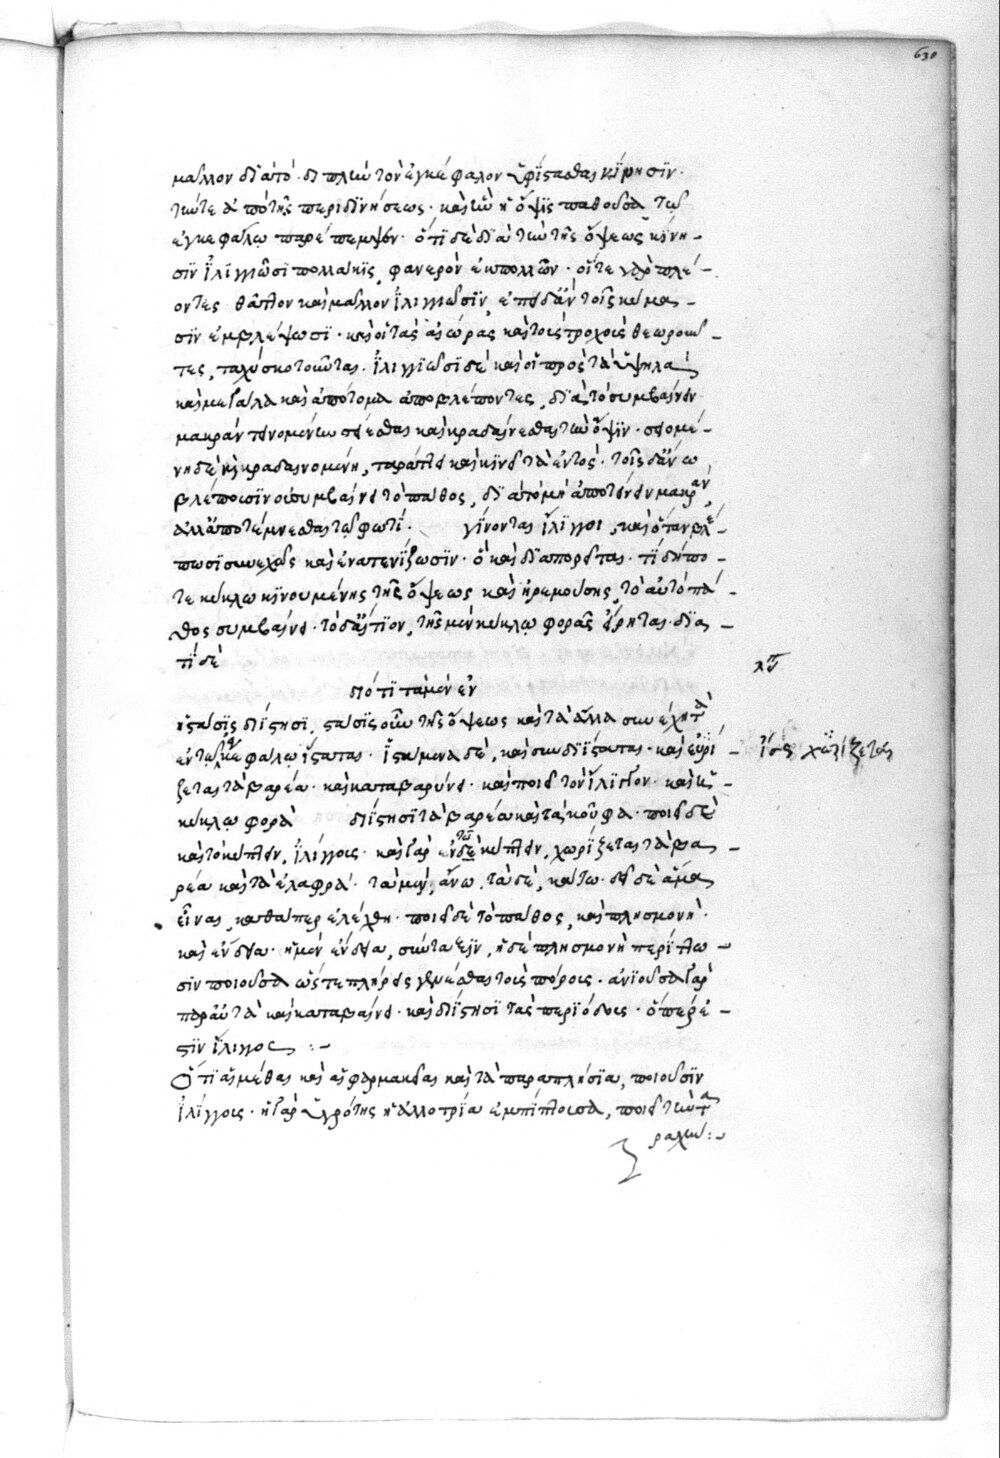 630
μᾶλλον διὰ τὸ διπλῶ τὸν ἐγκέφαλον ὑφίστασθαι κίνησιν·
τήν τε ἀπὸ τῆς περιδινήσεως· καὶ ἣν ἡ ὄψις παθοῦσα τῷ
ἐγκεφάλῳ παρέπεμψεν· ὅτι δὲ διὰ τὴν τῆς ὄψεως κίνη-
σιν ἰλιγγιῶσι πολλάκις, φανερὸν ἐκ πολλῶν· οἵ τε γὰρ πλέ-
οντες θᾶττον καὶ μᾶλλον ἰλιγγιῶσιν, ἐπειδὰν τοῖς κύμα-
σιν ἐμβλέψωσι· καὶ οἱ τὰς αἰώρας καὶ τοὺς τροχοὺς θεωροῦν-
τες, ταχὺ σκοτοῦνται. ἰλιγγιῶσι δὲ καὶ οἱ πρὸς τὰ ὑψηλὰ
καὶ μεγάλα καὶ ἀπότομα ἀποβλέποντες, διὰ τὸ συμβαίνειν
μακρὰν τεινομένην σείεσθαι καὶ κραδαίνεσθαι τὴν ὄψιν· σειομέ-
νη δὲ καὶ κραδαινομένη, ταράττει καὶ κινεῖ τὰ ἐντός· τοῖς δ' ἄνω
βλέπουσιν οὐ συμβαίνει τὸ πάθος, διὰ τὸ μὴ ἀποτείνειν μακρὰν,
ἀλλ' ἀποτέμνεσθαι τῷ φωτί. γίνονται ἴλιγγοι, καὶ ὅταν βλέ-
πωσι συνεχῶς καὶ ἐνατενίζωσιν· ὃ καὶ διαπορεῖται· τί δήπο-
τε κύκλω κινουμένης τῆς ὄψεως καὶ ἠρεμούσης, τὸ αὐτὸ πά-
θος συμβαίνει· τὸ δ' αἴτιον, τῆς μὲν κύκλῳ φορᾶς εἴρηται· δια-
τί δὲ
λπ
διότι τὰ μὲν ἐν
ἡ στάσις διίστησι, στάσις οὖν τῆς ὄψεως καὶ τὰ ἄλλα συνεχῆ τὰ
ἐν τῷ ἐγκεφάλω ἵσταται· ἱστάμενα δὲ, καὶ συνδιίσταται· καὶ εὐρί-
ἴσως χωρίζεται
ζεται τὰ βαρέα· καὶ καταβαρύνει· καὶ ποιεῖ τὸν ἴλιγγον· καὶ ἡ
κύκλῳ φορὰ διίστησι τὰ βαρέα καὶ τὰ κοῦφα· ποιεῖ δὲ
καὶ τὸ κύπτειν, ἰλίγγους· καὶ γὰρ ἐν δὲ τῷ κύπτειν, χωρίζεται τὰ βα-
ρέα καὶ τὰ ἐλαφρά· τὰ μὲν, ἄνω, τὰ δὲ, κάτω· δεῖ δὲ ἅμα
εἶναι, καθάπερ ἐλέχθη· ποιεῖ δὲ τὸ πάθος, καὶ πλησμονὴ·
καὶ ἔνδεια· ἡ μὲν ἔνδεια, σύντηξιν, ἡ δὲ πλησμονὴ περίττω-
σιν ποιοῦσα ὥστε πλήρεις γενέσθαι τοὺς πόρους· ἀνιοῦσα γὰρ
παρ' αὐτὰ καὶ καταβαίνει· καὶ διίστησι τὰς περιόδους· ὅπερ ἐ-
στὶν ἴλιγγος :-
Ὅτι αἱ μέθαι καὶ αἱ φαρμακεῖαι καὶ τὰ παραπλήσια, ποιοῦσιν
ἰλίγγους· ἡ γὰρ ὑγρότης ἡ ἀλλοτρία ἐμπίπτουσα, ποιεῖ τὴν τα-
ραχὴν :-